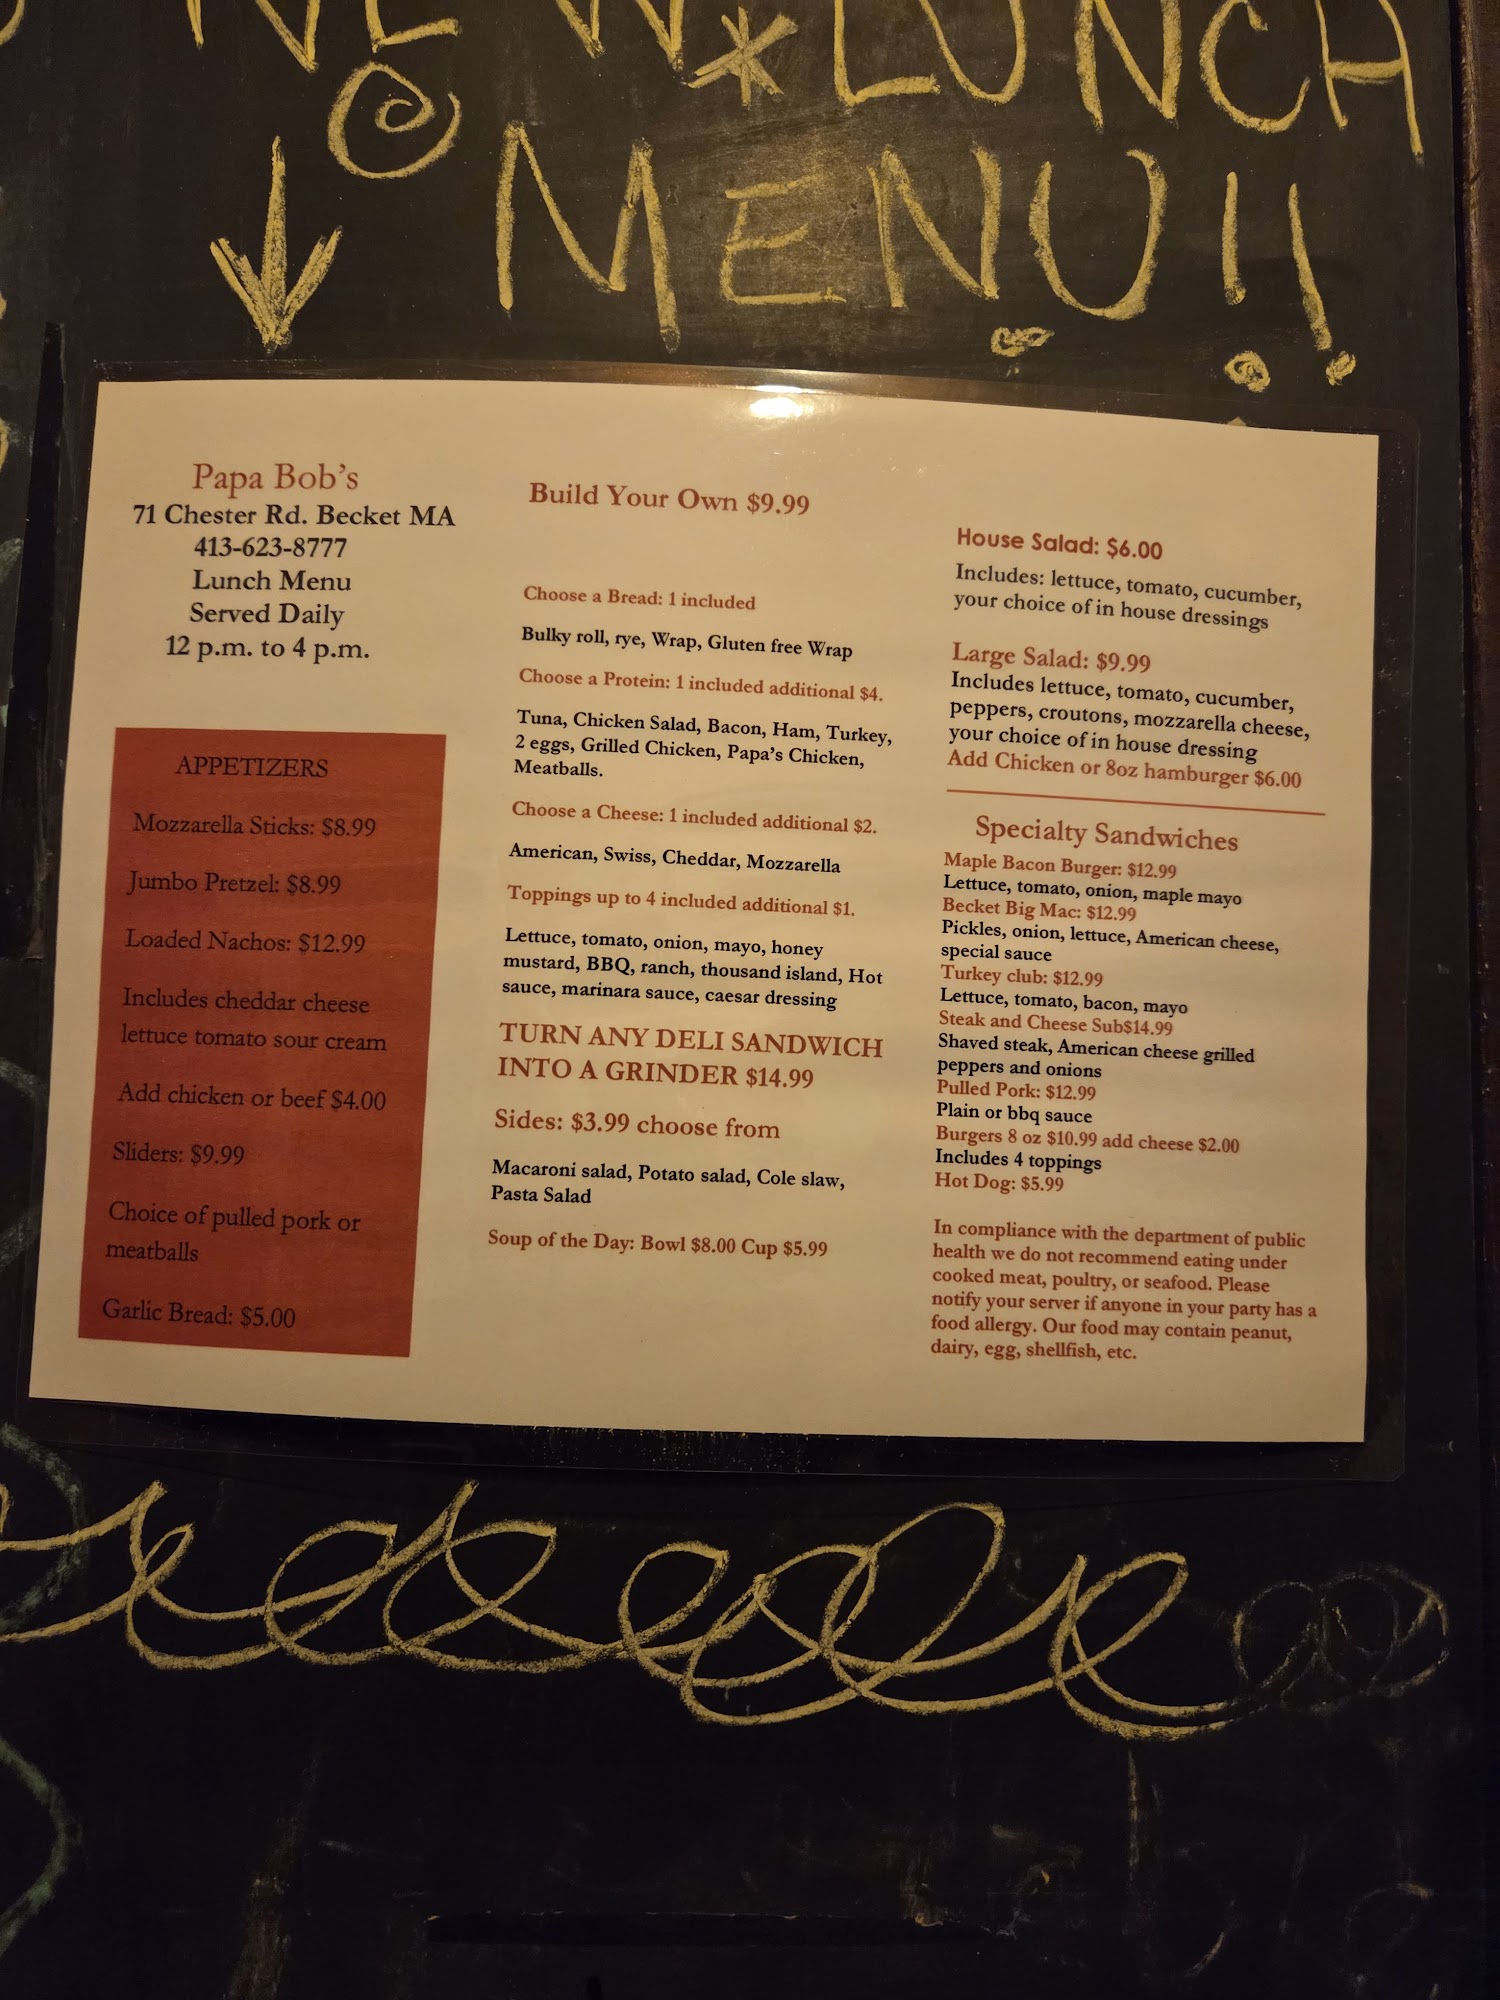 NEW * LUNCH
MENU!!
Papa Bob's
71 Chester Rd. Becket MA
413-623-8777
Lunch Menu
Served Daily
12 p.m. to 4 p.m.
APPETIZERS
Mozzarella Sticks: $8.99
Jumbo Pretzel: $8.99
Loaded Nachos: $12.99
Includes cheddar cheese
lettuce tomato sour cream
Add chicken or beef $4.00
Sliders: $9.99
Choice of pulled pork or
meatballs
Garlic Bread: $5.00
Build Your Own $9.99
Choose a Bread: 1 included
Bulky roll, rye, Wrap, Gluten free Wrap
Choose a Protein: 1 included additional $4.
Tuna, Chicken Salad, Bacon, Ham, Turkey,
2 eggs, Grilled Chicken, Papa's Chicken,
Meatballs.
Choose a Cheese: 1 included additional $2.
American, Swiss, Cheddar, Mozzarella
Toppings up to 4 included additional $1.
Lettuce, tomato, onion, mayo, honey
mustard, BBQ, ranch, thousand island, Hot
sauce, marinara sauce, caesar dressing
TURN ANY DELI SANDWICH
INTO A GRINDER $14.99
Sides: $3.99 choose from
Macaroni salad, Potato salad, Cole slaw,
Pasta Salad
Soup of the Day: Bowl $8.00 Cup $5.99
House Salad: $6.00
Includes: lettuce, tomato, cucumber,
your choice of in house dressings
Large Salad: $9.99
Includes lettuce, tomato, cucumber,
peppers, croutons, mozzarella cheese,
your choice of in house dressing
Add Chicken or 8oz hamburger $6.00
Specialty Sandwiches
Maple Bacon Burger: $12.99
Lettuce, tomato, onion, maple mayo
Becket Big Mac: $12.99
Pickles, onion, lettuce, American cheese,
special sauce
Turkey club: $12.99
Lettuce, tomato, bacon, mayo
Steak and Cheese Sub$14.99
Shaved steak, American cheese grilled
peppers and onions
Pulled Pork: $12.99
Plain or bbq sauce
Burgers 8 oz $10.99 add cheese $2.00
Includes 4 toppings
Hot Dog: $5.99
In compliance with the department of public
health we do not recommend eating under
cooked meat, poultry, or seafood. Please
notify your server if anyone in your party has a
food allergy. Our food may contain peanut,
dairy, egg, shellfish, etc.